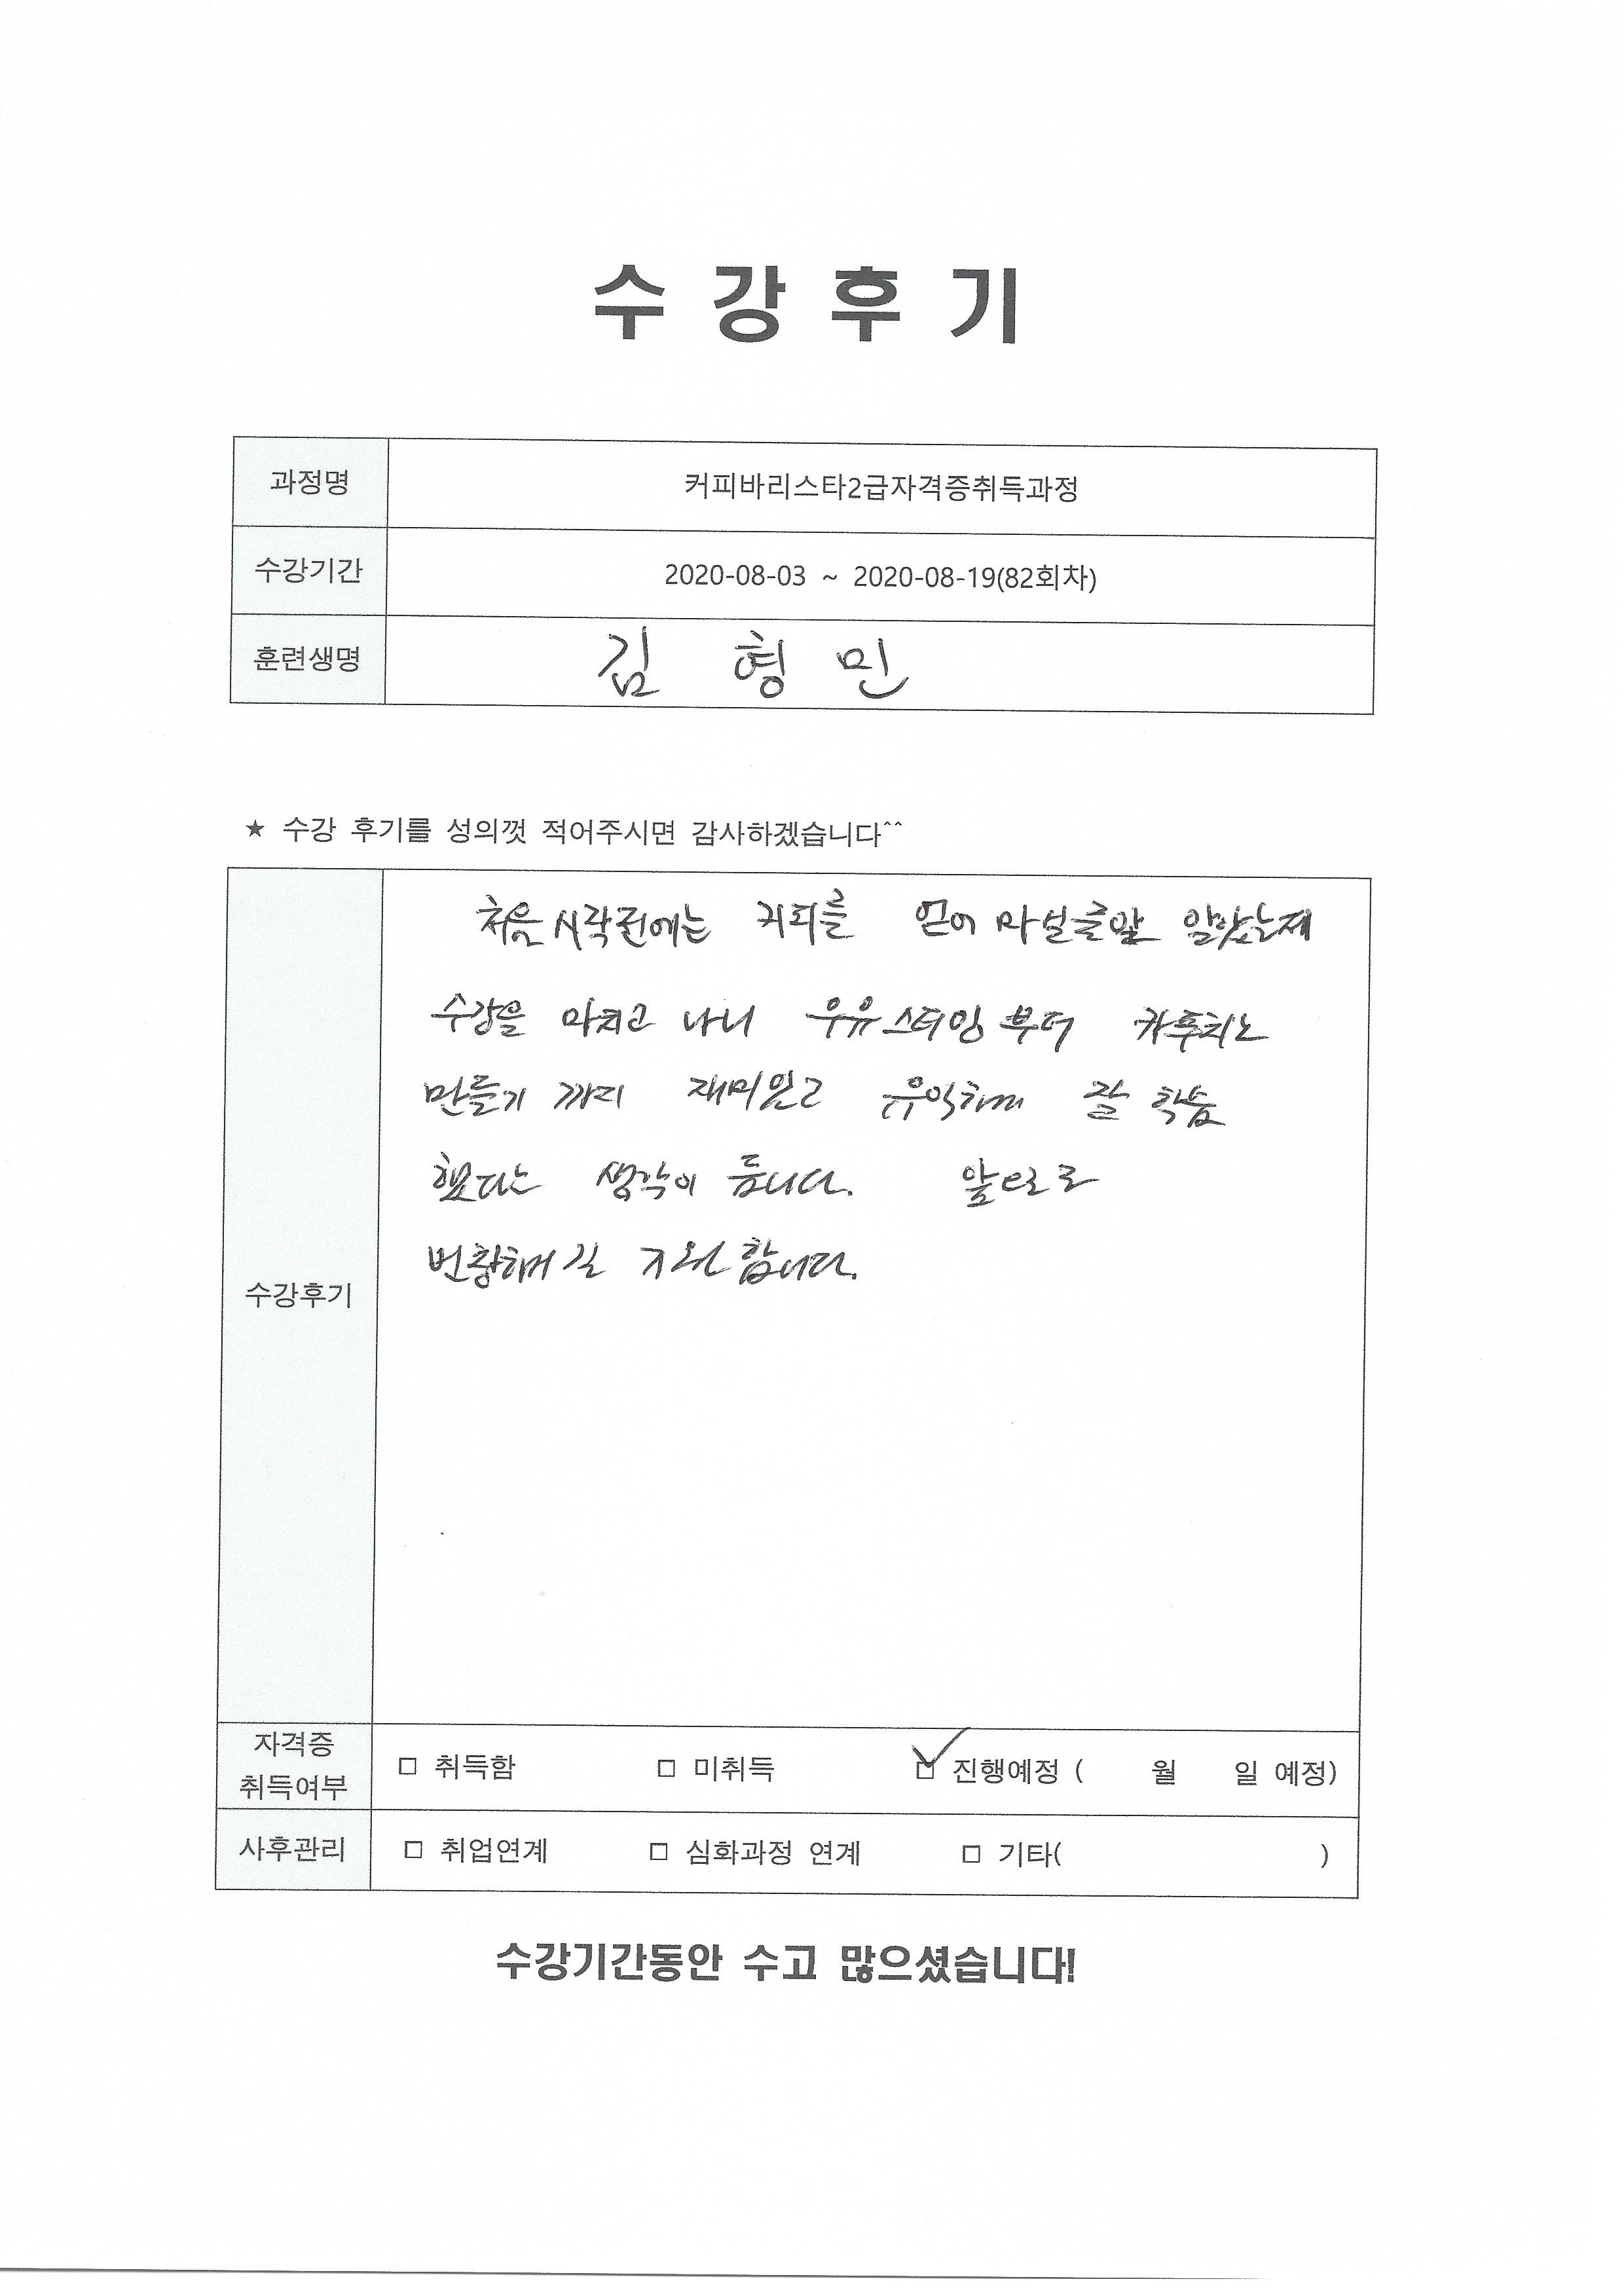 수 강 후 기
과정명 커피바리스타2급자격증취득과정
수강기간 2020-08-03 ~ 2020-08-19(82회차)
훈련생명 김 형 민
★ 수강 후기를 성의껏 적어주시면 감사하겠습니다^^
처음 시작전에는 커피를 얻어 마실줄만 알았는데
수강을 마치고 나니 우유스티밍 부터 카푸치노
만들기 까지 재미있고 유익하게 잘 학습
했다는 생각이 듭니다. 앞으로
번창하길 기원합니다.
수강후기
자격증
취득여부 □ 취득함 □ 미취득 ☑ 진행예정 ( 월 일 예정)
사후관리 □ 취업연계 □ 심화과정 연계 □ 기타( )
수강기간동안 수고 많으셨습니다!